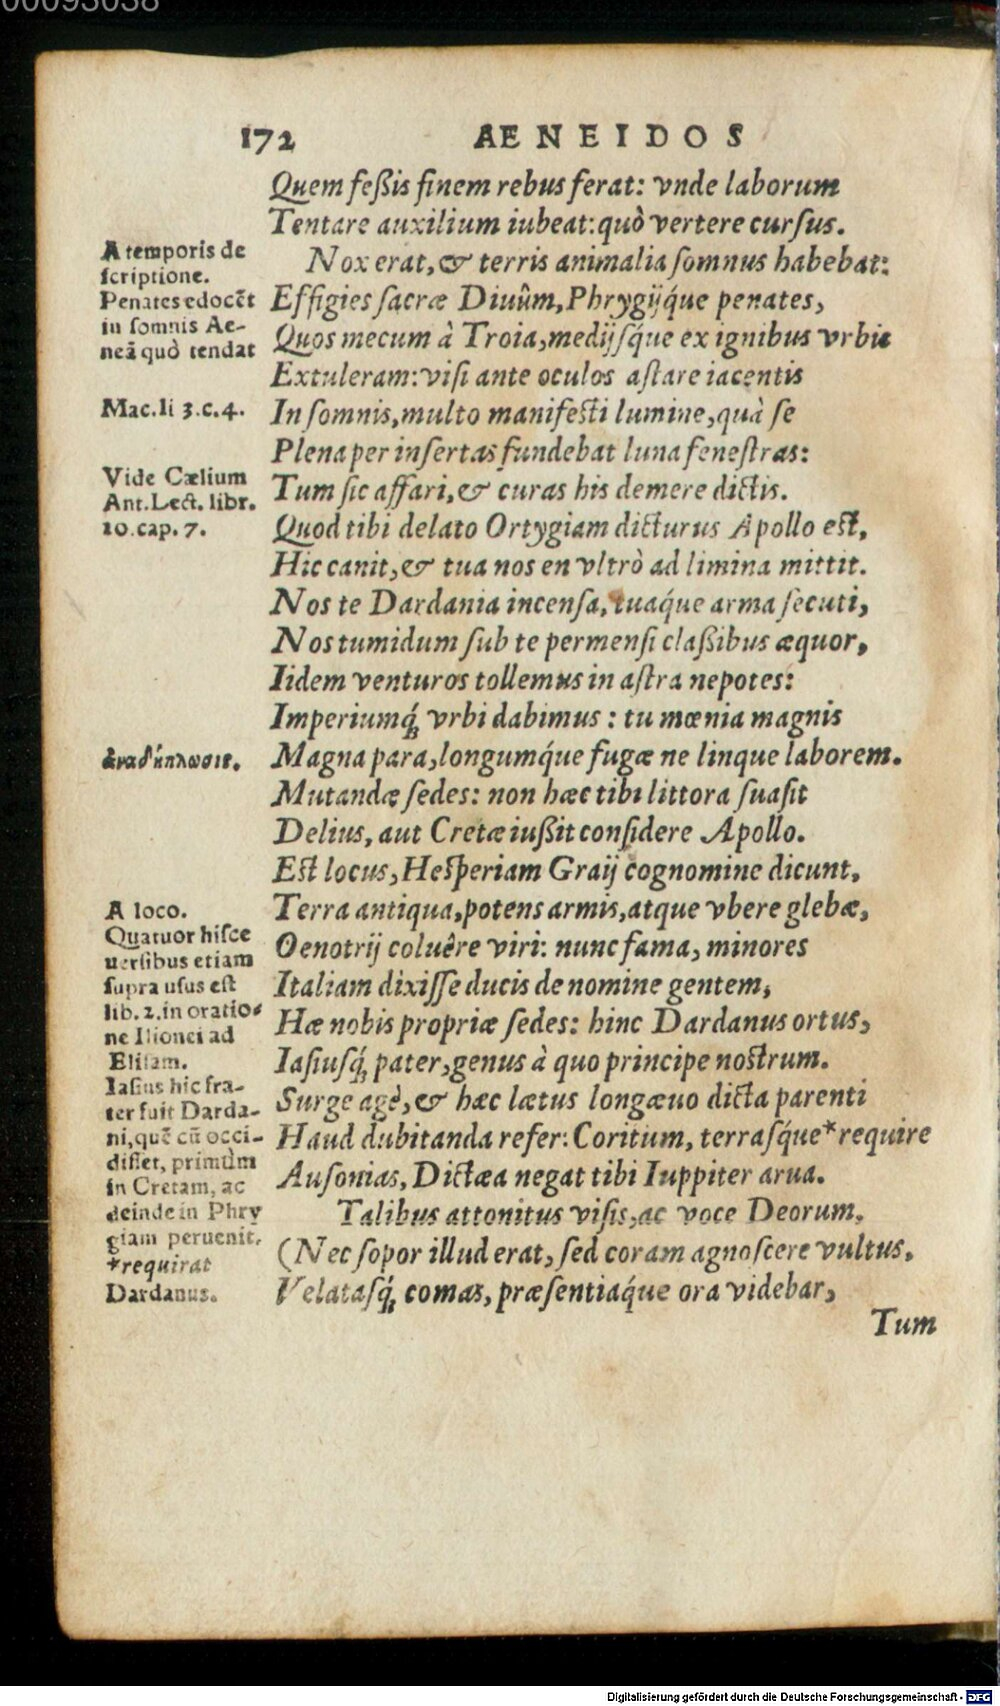 00093038
172 AENEIDOS
Quem feßis finem rebus ferat: vnde laborum
Tentare auxilium iubeat: quò vertere curſus.
A temporis de
ſcriptione.
Penates edocẽt
in ſomnis Ae-
neã quò tendat
Nox erat, & terris animalia ſomnus habebat:
Effigies ſacræ Diuûm, Phrygijq́ue penates,
Quos mecum à Troia, medijſq́ue ex ignibus vrbis
Extuleram: viſi ante oculos aſtare iacentis
Mac. li 3. c. 4.
In ſomnis, multo manifeſti lumine, quà ſe
Plena per inſertas fundebat luna feneſtras:
Vide Cælium
Ant. Lect. libr.
10. cap. 7.
Tum ſic affari, & curas his demere dictis.
Quod tibi delato Ortygiam dicturus Apollo eſt,
Hic canit, & tua nos en vltrò ad limina mittit.
Nos te Dardania incenſa, tuaq́ue arma ſecuti,
Nos tumidum ſub te permenſi claßibus æquor,
Iidem venturos tollemus in aſtra nepotes:
Imperiumq́; vrbi dabimus: tu mœnia magnis
ἀναδίπλωσις.
Magna para, longumq́ue fugæ ne linque laborem.
Mutandæ ſedes: non hæc tibi littora ſuaſit
Delius, aut Cretæ iußit conſidere Apollo.
Eſt locus, Heſperiam Graij cognomine dicunt,
A loco.
Quatuor hiſce
uerſibus etiam
ſupra uſus eſt
lib. 2. in oratio-
ne Ilionei ad
Eliſam.
Iaſius hic fra-
ter fuit Darda-
ni, quẽ cũ occi-
diſſet, primùm
in Cretam, ac
deinde in Phry
giam peruenit.
*requirat
Dardanus.
Terra antiqua, potens armis, atque vbere glebæ,
Oenotrij coluêre viri: nunc fama, minores
Italiam dixiſſe ducis de nomine gentem,
Hæ nobis propriæ ſedes: hinc Dardanus ortus,
Iaſiuſq́; pater, genus à quo principe noſtrum.
Surge agè, & hæc lætus longæuo dicta parenti
Haud dubitanda refer: Coritum, terraſq́ue *require
Auſonias, Dictæa negat tibi Iuppiter arua.
Talibus attonitus viſis, ac voce Deorum,
(Nec ſopor illud erat, ſed coram agnoſcere vultus,
Velataſq́; comas, præſentiaq́ue ora videbar,
Tum
Digitalisierung gefördert durch die Deutsche Forschungsgemeinschaft - DFG